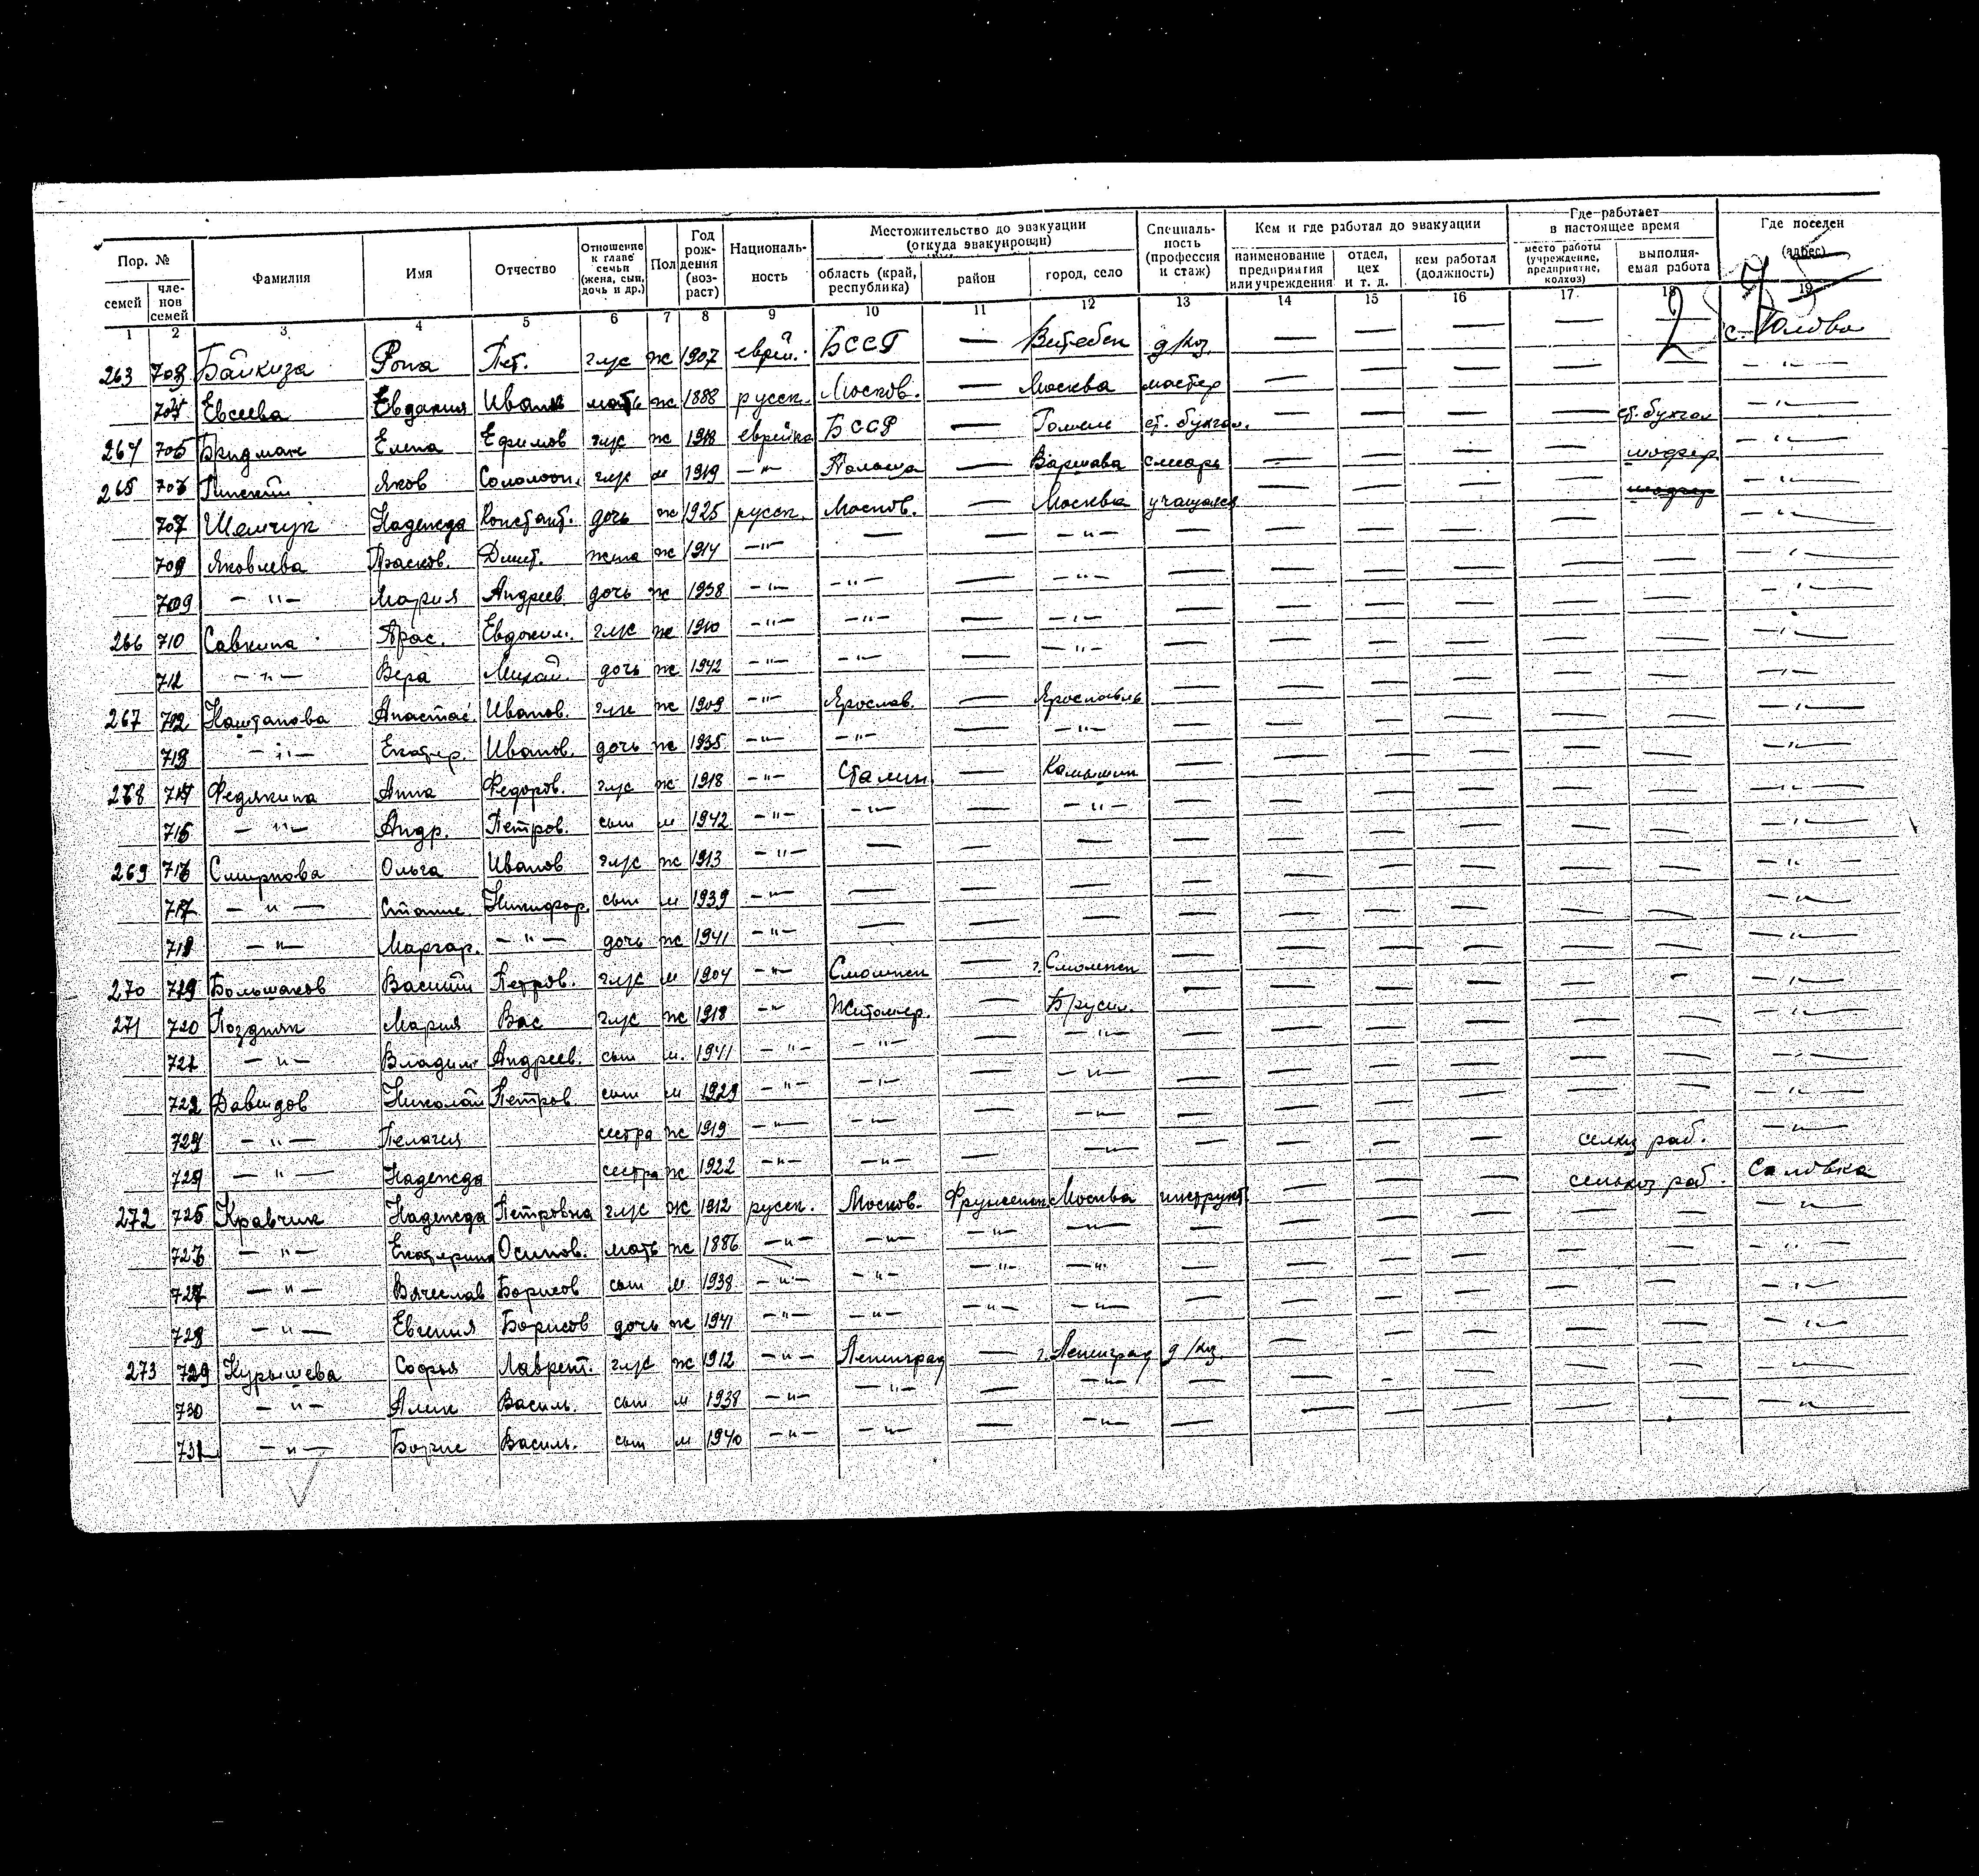 Пор. № Фамилия Имя Отчество Отношение к главе семьи (жена, сын, дочь и др.) Пол Год рождения (возраст) Националь-ность Местожительство до эвакуации (откуда эвакуирован) Специаль-ность (профессия и стаж) Кем и где работал до эвакуации Где работает в настоящее время Где поселен (адрес)
семей членов семей область (край, республика) район город, село наименование предприятия или учреждения отдел, цех и т. д. кем работал (должность) место работы (учреждение, предприятие, колхоз) выполня-емая работа
1 2 3 4 5 6 7 8 9 10 11 12 13 14 15 16 17 18 19
263 703 Байкиза Роза Пет. глс ж 1907 еврей. БССР — Витебск д/хоз. — — — — 2 с.
704 Евсеева Евдакия Иван мать ж 1888 русск. Москов. — Москва мастер — — — — — -"-
264 705 Бридман Елена Ефимов глс ж 1918 еврейка БССР — Гомель ст. бухгал. — — — — ст. бухгал -"-
265 706 Пинский Яков Соломон. глс м 1919 -"- Польша — Варшава слесарь — — — — шофер -"-
707 Шемчук Надежда Констант. дочь ж 1925 русск. Москов. — Москва учащаяся — — — — шофер -"-
708 Яковлева Прасков. Дмит. жена ж 1914 -"- — — -"- — — — — — — -"-
709 -"- Мария Андреев. дочь ж 1938 -"- -"- — -"- — — — — — — -"-
266 710 Савкина Прас. Евдоким. глс ж 1910 -"- -"- — -"- — — — — — — -"-
711 -"- Вера Михай. дочь ж 1942 -"- -"- — -"- — — — — — — -"-
267 712 Каштанова Анастас. Иванов. глс ж 1909 -"- Ярослав. — Ярославль — — — — — — -"-
713 -"- Екатер. Иванов. дочь ж 1935 -"- -"- — -"- — — — — — — -"-
268 714 Федякина Анна Федоров. глс ж 1918 -"- Сталин. — Камышин — — — — — — -"-
715 -"- Андр. Петров. сын м 1942 -"- -"- — -"- — — — — — — -"-
269 716 Смирнова Ольга Иванов глс ж 1913 -"- — — — — — — — — — -"-
717 -"- Никифор. сын м 1939 -"- — — — — — — — — — -"-
718 -"- Маргар. -"- дочь ж 1941 -"- — — — — — — — — — -"-
270 719 Большаков Василий Петров. глс м 1904 -"- Смоленск — г. Смоленск — — — — — — -"-
271 720 Поздняк Мария Вас глс ж 1918 -"- Житомер. — Брусил. — — — — — — -"-
721 -"- Владим Андреев. сын м. 1941 -"- -"- — -"- — — — — — — -"-
722 Давыдов Николай Петров. сын м 1929 -"- -"- — -"- — — — — — — -"-
723 -"- Пелагия сестра ж 1919 -"- -"- — -"- — — — — сельхоз раб. -"-
724 -"- Надежда сестра ж 1922 -"- -"- — -"- — — — — сельхоз раб. Саловка
272 725 Кравчик Надежда Петровна глс ж 1912 русск. Москов. Фрунзенск Москва инструкт. — — — — — -"-
726 -"- Екатерина Осипов. мать ж 1886 -"- -"- -"- -"- — — — — — — -"-
727 -"- Вячеслав Борисов сын м. 1938 -"- -"- -"- -"- — — — — — — -"-
728 -"- Евгения Борисов дочь ж 1941 -"- -"- -"- -"- — — — — — — -"-
273 729 Курышева Софья Лаврент. глс ж 1912 -"- Ленинград — г. Ленинград д/хоз. — — — — — -"-
730 -"- Алик Василь. сын м 1938 -"- -"- — -"- — — — — — — -"-
731 -"- Борис Василь. сын м 1940 -"- -"- — -"- — — — — — — -"-